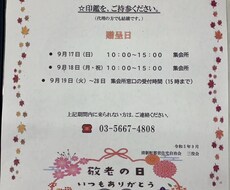 ☆印鑑を、ご持参ください。
(代理の方でも結構です。)
贈呈日
• 9月17日(日) 10:00~15:00 集会所
• 9月18日(月・祝) 10:00~15:00 集会所
• 9月19日(火)~28日 集会所窓口の受付時間(15時まで)
上記期間内に来られない方は、ご連絡ください。
☎ 03-5667-4808
令和5年9月
敬老の日
いつもありがとう